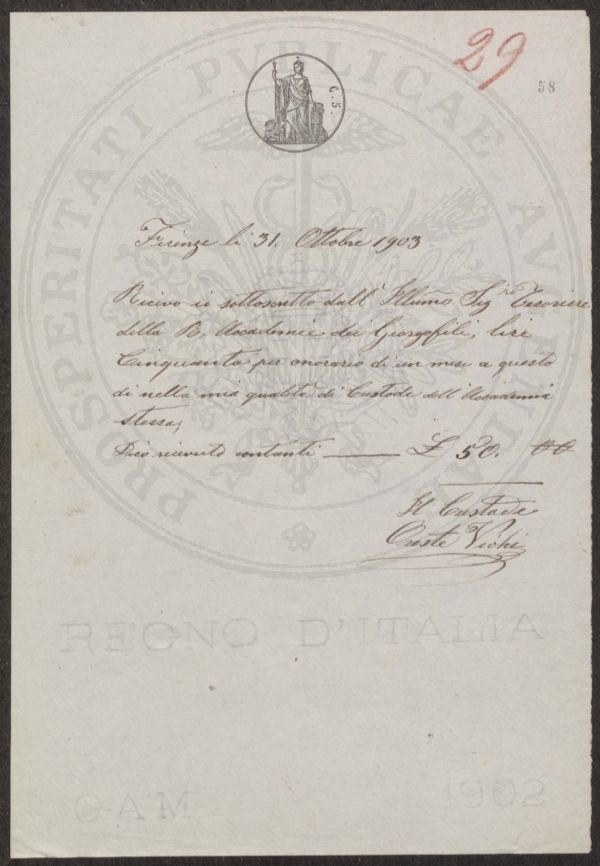 29
58
C. 5.
Firenze li 31. Ottobre 1903
Ricevo io sottoscritto dall' Illumo Sigre Tesoriere
della R. Accademia dei Georgofili, lire
Cinquanta per onorario di un mese a questo
dì nella mia qualità di Custode dell' Accademia
stessa,
Dico ricevuto contanti —— £ 50. 00
Il Custode
Oreste Vichi
PROSPERITATI PVBLICAE
REGNO D'ITALIA
1902